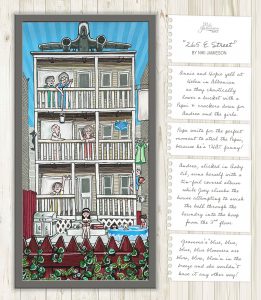 "265 E Street"
BY NIKI JAMIESON
Annie and Sofie yell at
Helen in Albanian
as they chaotically
lower a bucket with a
Pepsi & crackers down for
Andrea and the girls.
Pepa waits for the perfect
moment to steal the Pepsi,
because he's "THAT funny!
Andrea, slicked in Baby
Oil, suns herself with a
tin-foil covered album
while Greg climbs the
house attempting to sneak
the ball through the
laundry into the hoop
from the 3rd floor.
Gramma's blue, blue,
blue, blue bloomers are
blue, blue, blowin in the
breeze and she wouldn't
have it any other way!